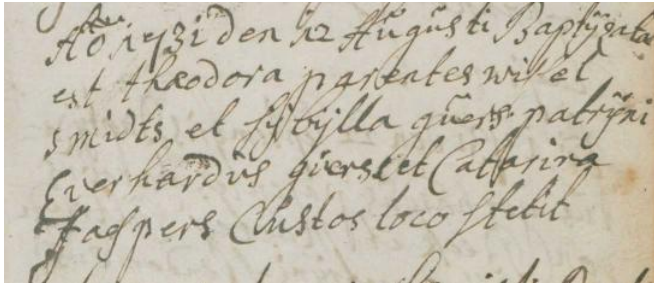 Aõ 1731 den 12 Aŭgŭsti Baptÿzata
est theodora parentes wilel
smidts et sÿbÿlla gŭers patrÿni
Everhardŭs giers et Catarina
Jaspers Cŭstos loco stetit